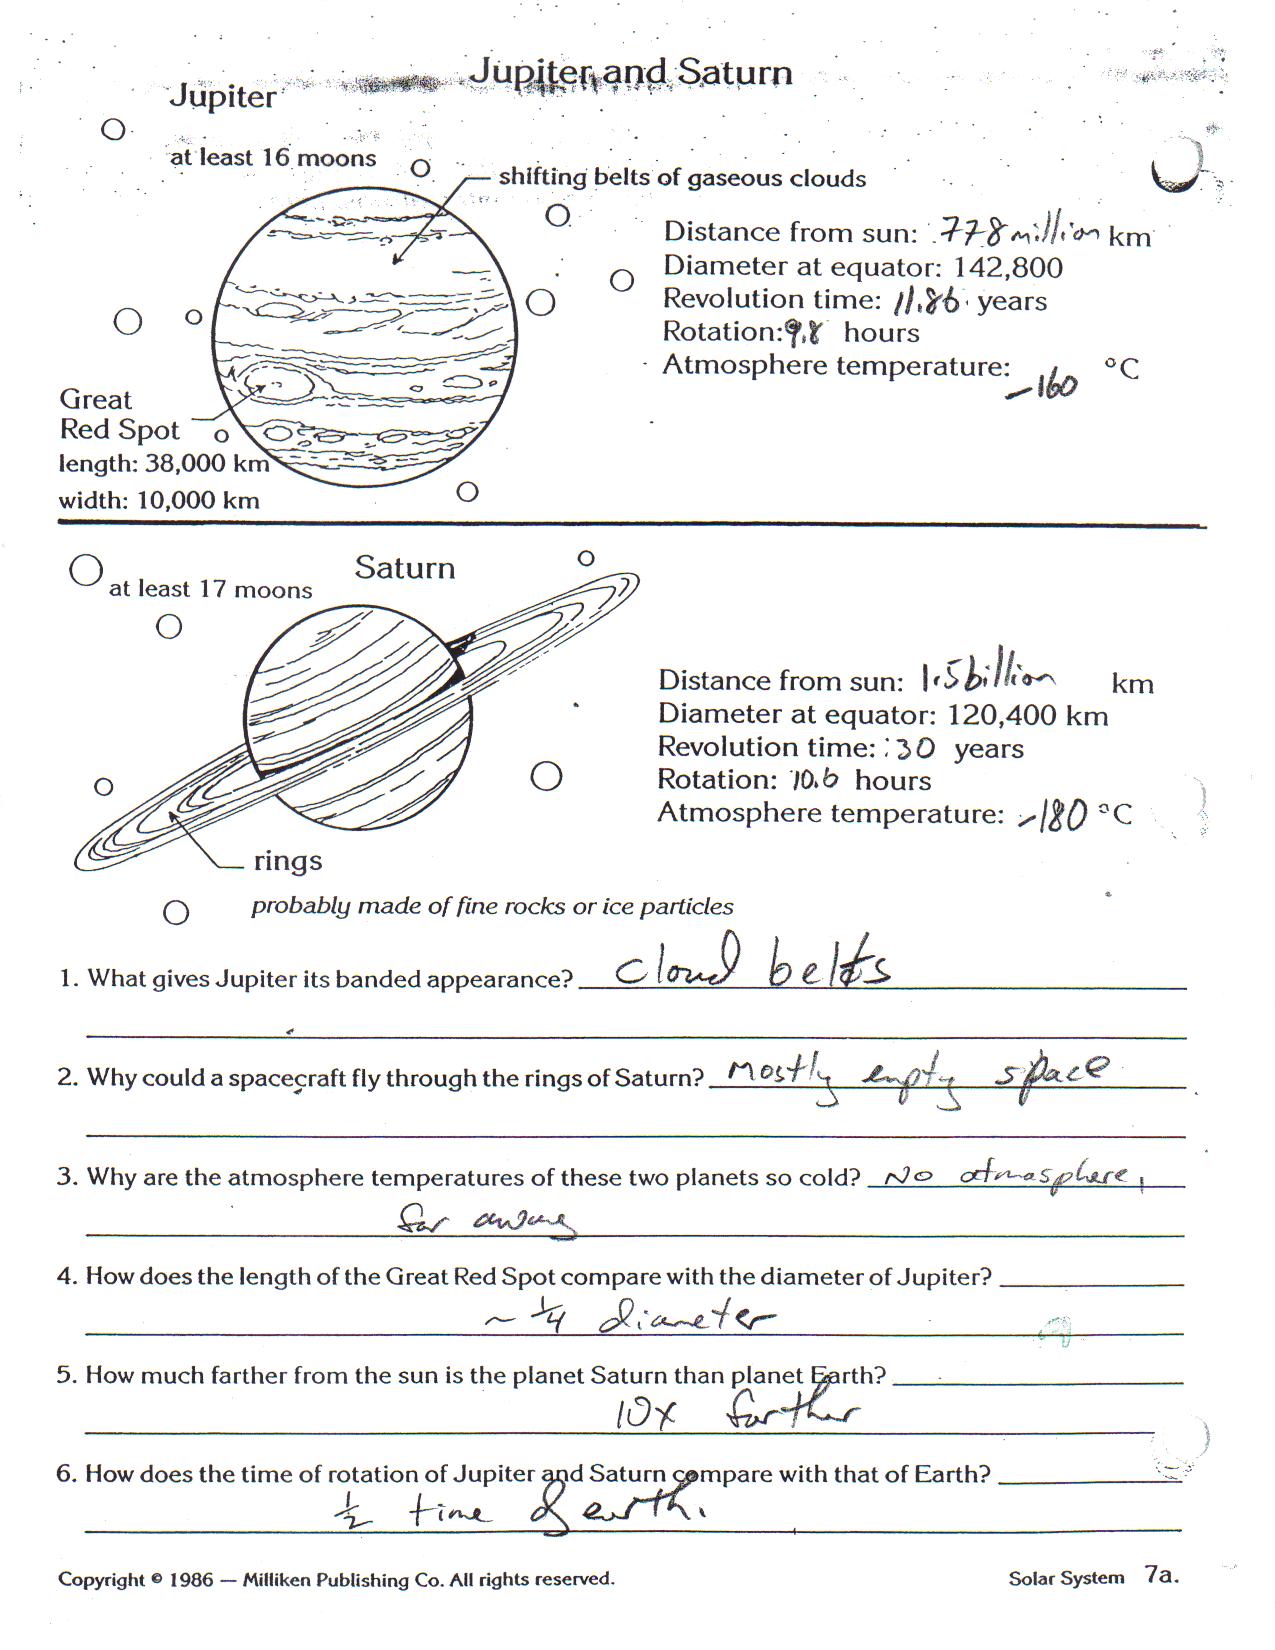 Jupiter and Saturn
Jupiter
at least 16 moons
shifting belts of gaseous clouds
Distance from sun: 778 million km
Diameter at equator: 142,800
Revolution time: 11.86 years
Rotation: 9.8 hours
Atmosphere temperature: -160 °C
Great
Red Spot
length: 38,000 km
width: 10,000 km
Saturn
at least 17 moons
Distance from sun: 1.5 billion km
Diameter at equator: 120,400 km
Revolution time: 30 years
Rotation: 10.6 hours
Atmosphere temperature: -180 °C
rings
probably made of fine rocks or ice particles
1. What gives Jupiter its banded appearance? cloud belts
2. Why could a spacecraft fly through the rings of Saturn? Mostly empty space
3. Why are the atmosphere temperatures of these two planets so cold? No atmosphere,
far away
4. How does the length of the Great Red Spot compare with the diameter of Jupiter?
~ 1/4 diameter
5. How much farther from the sun is the planet Saturn than planet Earth?
10x farther
6. How does the time of rotation of Jupiter and Saturn compare with that of Earth?
1/2 time of earth.
Copyright © 1986 — Milliken Publishing Co. All rights reserved.
Solar System 7a.